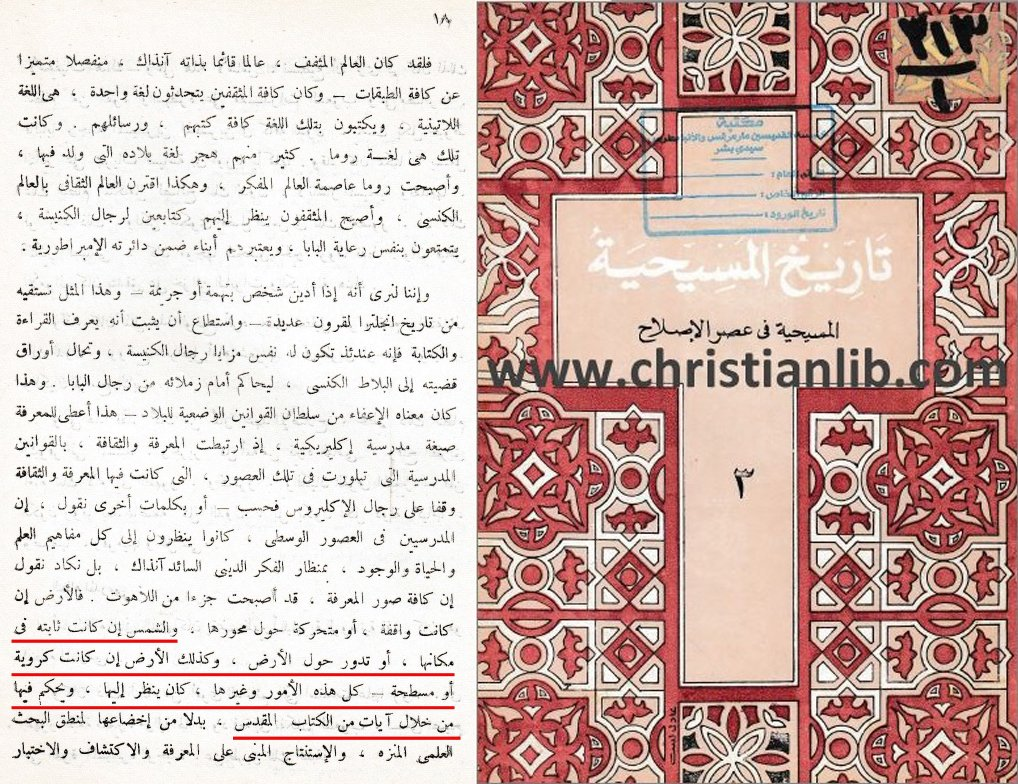 ١٨
فلقد كان العالم المثقف ، عالما قائما بذاته آنذاك ، منفصلا متميزا
عن كافة الطبقات — وكان كافة المثقفين يتحدثون لغة واحدة ، هى اللغة
اللاتينية ، ويكتبون بتلك اللغة كافة كتبهم ، ورسائلهم . وكانت
تلك هى لغة روما . كثير منهم هجر لغة بلاده التى ولد فيها ،
وأصبحت روما عاصمة العالم المفكر ، وهكذا اقترن العالم الثقافى بالعالم
الكنسى ، وأصبح المثقفون ينظر إليهم كتابعين لرجال الكنيسة ،
يتمتعون بنفس رعاية البابا ، ويعتبرهم أبناء ضمن دائرته الإمبراطورية .
وإننا لنرى أنه إذا أدين شخص بتهمة أو جريمة — وهذا المثل نستقيه
من تاريخ انجلترا لقرون عديدة — واستطاع أن يثبت أنه يعرف القراءة
والكتابة فإنه عندئذ تكون له نفس مزايا رجال الكنيسة ، وتحال أوراق
قضيته إلى البلاط الكنسى ، ليحاكم أمام زملائه من رجال البابا . وهذا
كان معناه الإعفاء من سلطان القوانين الوضعية للبلاد — هذا أعطى للمعرفة
صبغة مدرسية إكليريكية ، إذ ارتبطت المعرفة والثقافة ، بالقوانين
المدرسية التى تبلورت فى تلك العصور ، التى كانت فيها المعرفة والثقافة
وقفا على رجال الإكليروس فحسب — أو بكلمات أخرى نقول ، إن
المدرسيين فى العصور الوسطى ، كانوا ينظرون إلى كل مفاهيم العلم
والحياة والوجود ، بمنظار الفكر الدينى السائد آنذاك ، بل نكاد نقول
إن كافة صور المعرفة ، قد أصبحت جزءا من اللاهوت . فالأرض إن
كانت واقفة ، أو متحركة حول محورها ، والشمس إن كانت ثابته فى
مكانها ، أو تدور حول الأرض ، وكذلك الأرض إن كانت كروية
أو مسطحة — كل هذه الأمور وغيرها ، كان ينظر إليها ، ويحكم فيها
من خلال آيات من الكتاب المقدس ، بدلا من إخضاعها لمنطق البحث
العلمى المنزه ، والإستنتاج المبنى على المعرفة والاكتشاف والاختبار
٢١٣
١
مكتبة
القديسين مارمرقس والأنبا
سيدى بشر
العام :
الخاص :
تاريخ الورود :
تَارِيخ المَسِيحِيَةُ
المسيحية فى عصر الإصلاح
www.christianlib.com
٣